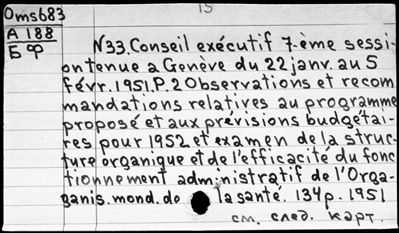 15
Oms683
A 188
БФ
N33. Conseil exécutif 7-ème sessi-
on tenue a Genève du 22 janv. au 5
févr. 1951. P.2 Observations et recom
mandations relatives au programme
proposé et aux prévisions budgétai-
res pour 1952 et examen de la struc-
ture organique et de l'efficacité du fonc
tionnement administratif de l'Orga-
ganis. mond. de la santé. 134p. 1951
см. след. карт.